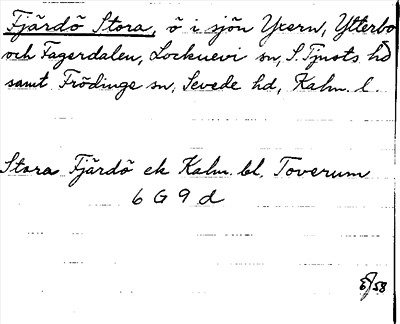 Fjärdö Stora, ö i sjön Yxern, Ytterbo
och Fagerdalen, Locknevi sn, S. Tjusts hd
samt Frödinge sn, Sevede hd, Kalm. l.
Stora Fjärdö ek Kalm. bl. Toverum
6 G 9 d
/58